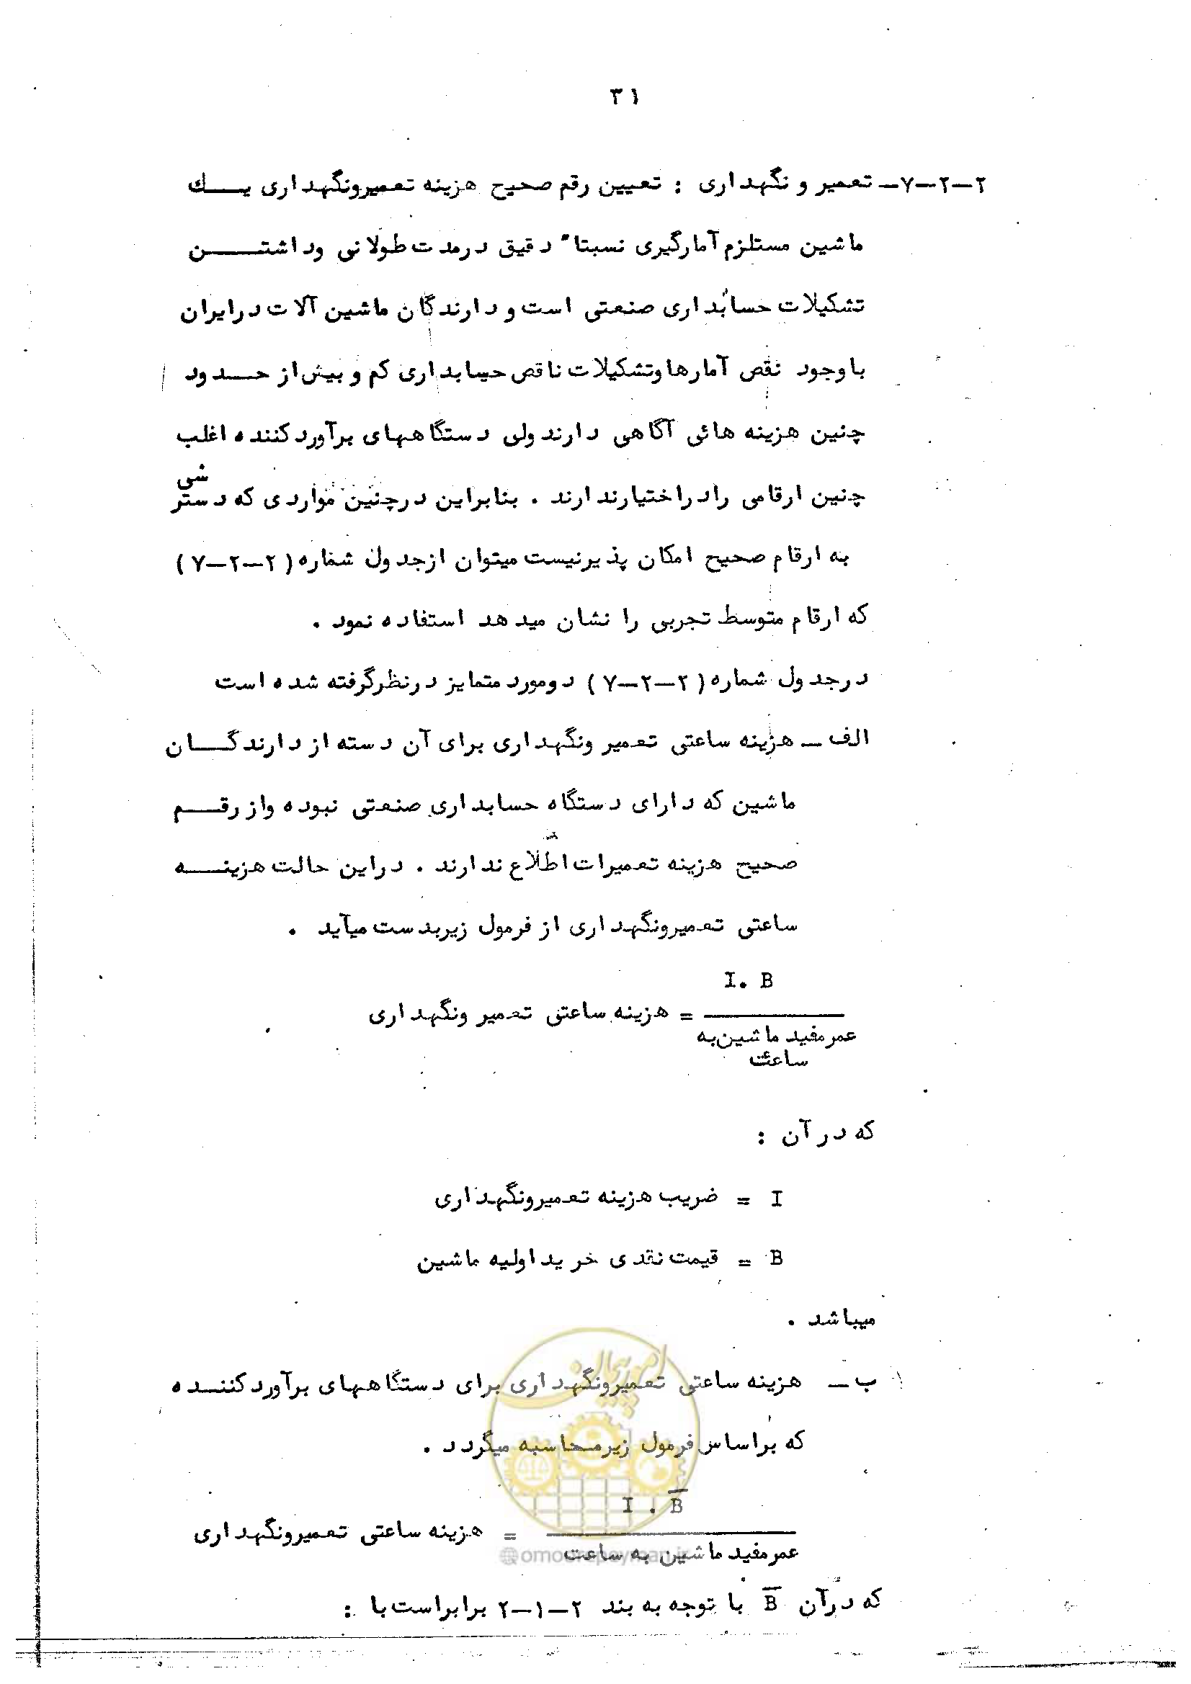 ۳۱
۲-۲-۷- تعمیر و نگهداری : تعیین رقم صحیح هزینه تعمیرونگهداری یک
ماشین مستلزم آمارگیری نسبتا" دقیق درمدت طولانی وداشتن
تشکیلات حسابداری صنعتی است و دارندگان ماشین آلات درایران
باوجود نقص آمارهاوتشکیلات ناقص حسابداری کم و بیش از حدود
چنین هزینه هائی آگاهی دارند ولی دستگاههای برآوردکننده اغلب
چنین ارقامی رادراختیارندارند . بنابراین درچنین مواردی که دسترشی
به ارقام صحیح امکان پذیرنیست میتوان ازجدول شماره (۲-۲-۷)
که ارقام متوسط تجربی را نشان میدهد استفاده نمود .
درجدول شماره (۲-۲-۷) دومورد متمایز درنظرگرفته شده است
الف - هزینه ساعتی تعمیر ونگهداری برای آن دسته از دارندگان
ماشین که دارای دستگاه حسابداری صنعتی نبوده واز رقم
صحیح هزینه تعمیرات اطلاع ندارند . دراین حالت هزینه
ساعتی تعمیرونگهداری از فرمول زیربدست میآید .
I. B
هزینه ساعتی تعمیر ونگهداری =
عمرمفید ماشین به
ساعت
که درآن :
I = ضریب هزینه تعمیرونگهداری
B = قیمت نقدی خرید اولیه ماشین
میباشد .
امور پیمان
ب - هزینه ساعتی تعمیرونگهداری برای دستگاههای برآوردکننده
که براساس فرمول زیرمحاسبه میگردد .
I . B̅
هزینه ساعتی تعمیرونگهداری =
عمرمفید ماشین به ساعت
@omoorepeyman.ir
که درآن B̅ با توجه به بند ۲-۱-۲ برابراست با :